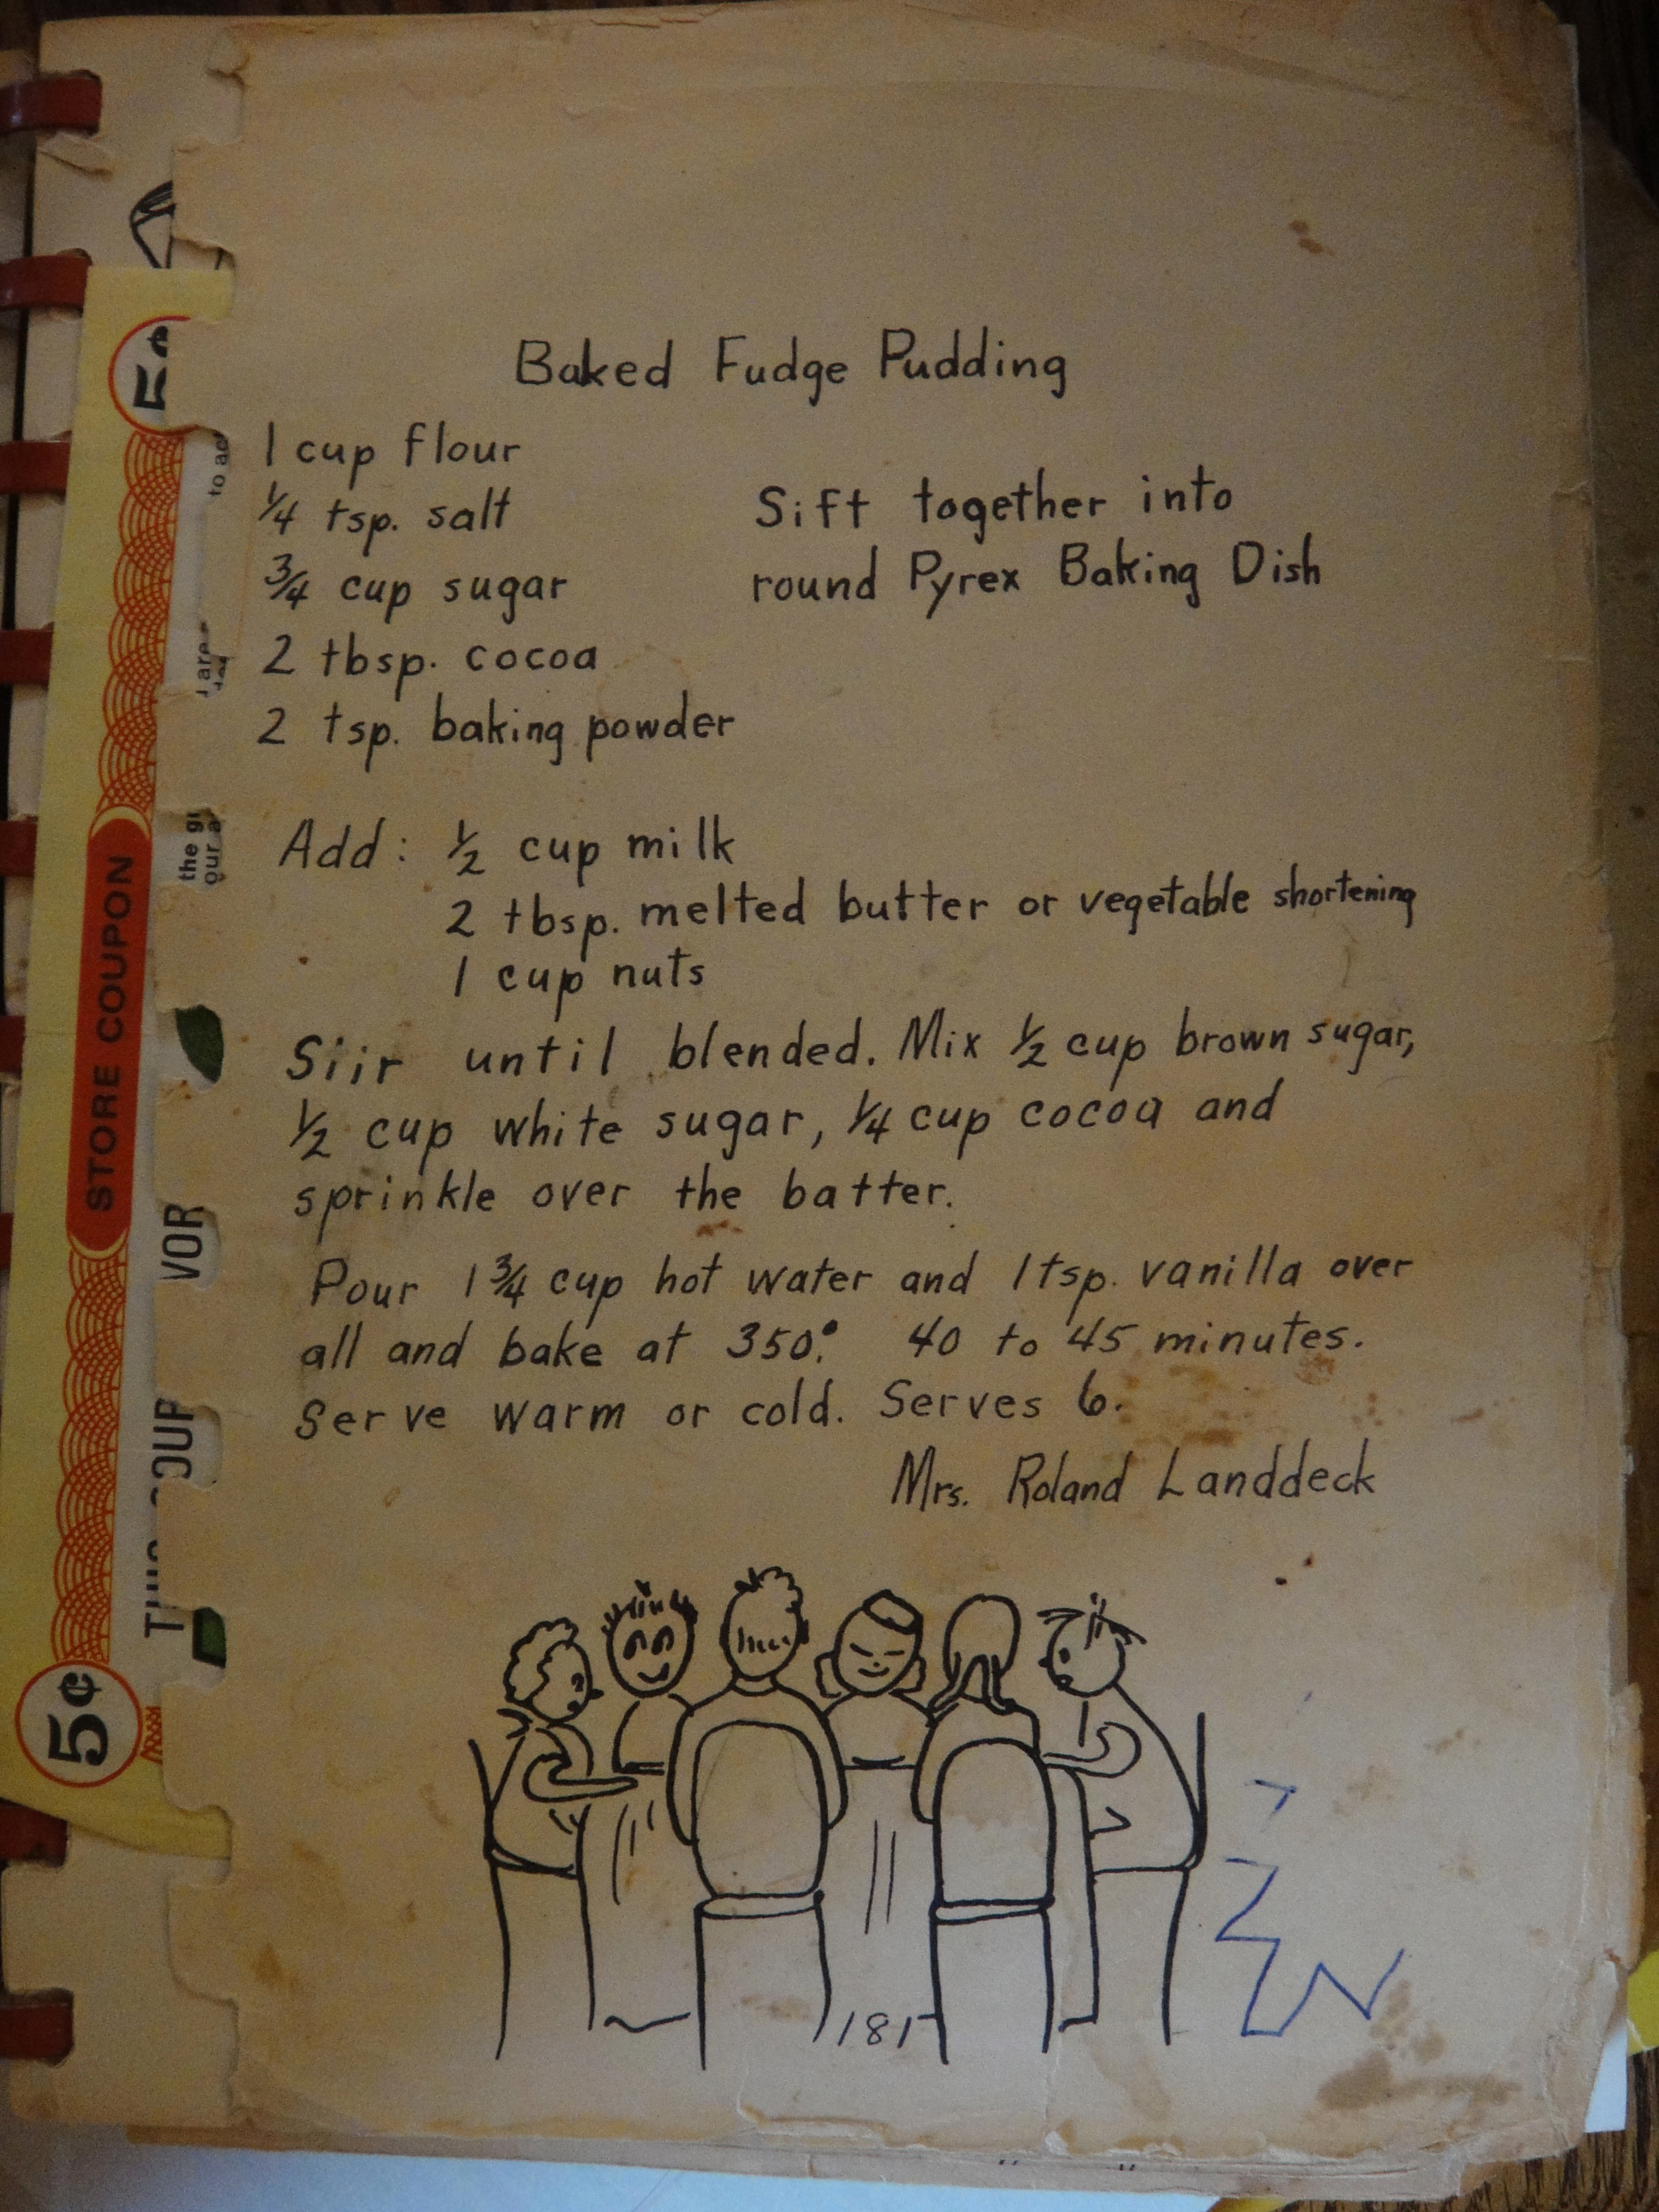 Baked Fudge Pudding
1 cup flour
1/4 tsp. salt
3/4 cup sugar
2 tbsp. cocoa
2 tsp. baking powder
Sift together into
round Pyrex Baking Dish
Add: 1/2 cup milk
2 tbsp. melted butter or vegetable shortening
1 cup nuts
Siir until blended. Mix 1/2 cup brown sugar,
1/2 cup white sugar, 1/4 cup cocoa and
sprinkle over the batter.
Pour 1 3/4 cup hot water and 1 tsp. vanilla over
all and bake at 350°. 40 to 45 minutes.
Serve warm or cold. Serves 6.
Mrs. Roland Landdeck
181
5¢
STORE COUPON
5¢
to
are
the
our
VOR